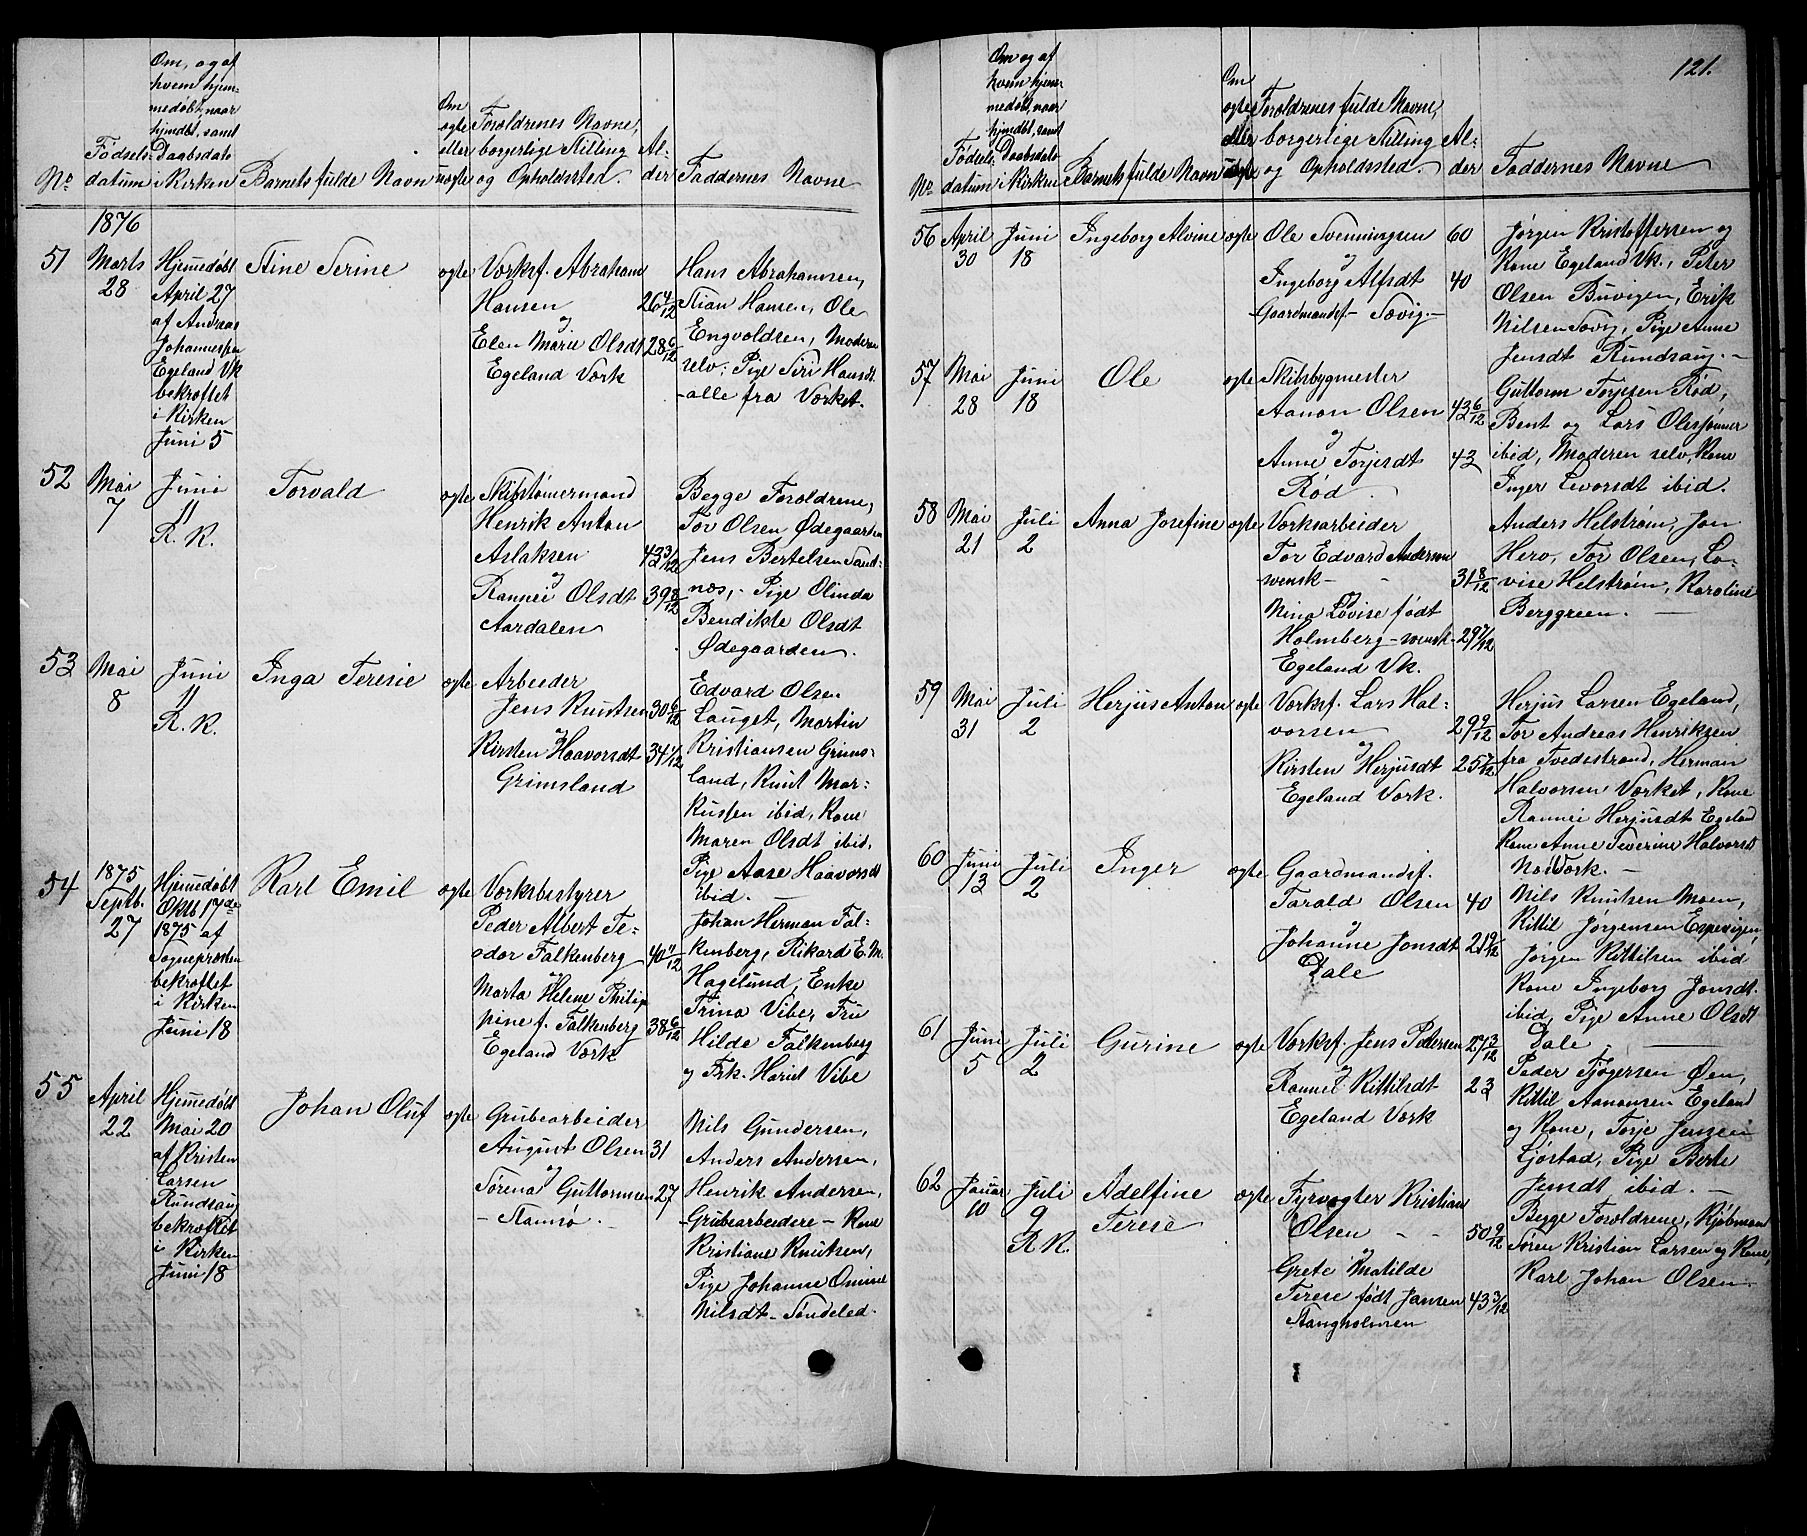 No
Fødsels-
datum
Om, og af
hvem hjem-
medøbt, naar
hjmdøbt, samt
Daabsdato
i Kirken
Barnets fulde Navn
Om
ægte
eller
uægte
Forældrenes Navne,
borgerlige Stilling
og Opholdssted.
Al-
der
Faddernes Navne
1876
51
Marts
28
Hjemedøbt
April 27
af Andreas
Johannesen
Egeland Vk
bekræftet
i Kirken
Juni 5
Stine Serine
ægte
Værksf. Abraham
Hansen 26 4/12
og
Elen Marie Olsdt 28 6/12
Egeland Værk
Hans Abrahamsen,
Stian Hansen, Ole
Engvoldsen, Moderen
selv, Pige Siri Hansdt
- alle fra Værket.
52
Mai
7
Juni
11
R. K.
Torvald
ægte
Skibstømermand
Henrik Anton
Aslaksen 43 3/12
og
Rannei Olsdt 39 8/12
Aardalen
Begge Forældrene,
Tor Olsen Ødegaarden
Jens Bertelsen Sand-
næs, - Pige Olinda
Bendikte Olsdt
Ødegaarden.
53
Mai
8
Juni
11
R. K.
Inga Teresie
ægte
Arbeider
Jens Knutsen 30 6/12
og
Kirsten Haavorsdt 34 1/12
Grimsland
Edvard Olsen
Lauget, Martin
Kristiansen Grims-
land, Knut Mar-
kussen ibid, Kone
Maren Olsdt ibid,
Pige Aase Haavorsdt
ibid. —
54
1875
Septb.
27
Hjemedøbt
Oktb 17de
1875 af
Sognepræsten
bekræftet
i Kirken
Juni 18
Karl Emil
ægte
Værksbestyrer
Peder Albert Te-
odor Falkenberg 40 4/12
og
Marta Helene Philip
pine f. Falkenberg 38 6/12
Egeland Værk
Johan Herman Fal-
kenberg, Rikard E. M.
Hagelund, Enke
Trina Vibe, Fru
Hilde Falkenberg
og Frk. Hariet Vibe
55
April
22
Hjemedøbt
Mai 20
af Kristen
Larsen
Rundsaug
bekræftet
i Kirken
Juni 18
Johan Oluf
ægte
Grubearbeider
August Olsen 31
og
Sørena Guttormsen 27
- Stamsø. -
Nils Gundersen,
Anders Andersen,
Henrik Andersen,
Grubearbeidere - Kone
Kristiane Knutsen,
Pige Johanne Omine
Nilsdt - Søndeled.
121.
No
Fødsels-
datum
Om og af
hvem hjem-
medøbt, naar
hjmdøbt, samt
Daabsdato
i Kirken
Barnets fulde Navn
Om
ægte
eller
uægte
Forældrenes fulde Navne,
borgerlige Stilling
og Opholdssted.
Al-
der
Faddernes Navne
56
April
30
Juni
18
Ingeborg Alvine
ægte
Ole Svenningsen 60
og
Ingeborg Alfsdt 40
Gaardmandsf - Sævig -
Jørgen Kristoffersen og
Kone Egeland Vk., Peter
Olsen Buvigen, Erik
Nilsen Sævig, Pige Anne
Jensdt Rundsaug. -
57
Mai
28
Juni
18
Ole
ægte
Skibsbygmester
Aanon Olsen 43 6/12
og
Anne Torjesdt 43
Rød.
Guttorm Torjesen Rød,
Bent og Lars Olessønner
ibid, Moderen selv, Kone
Inger Levorsdt ibid.
58
Mai
21
Juli
2
Anna Josefine
ægte
Værksarbeider
Tor Edvard Anderson
svensk - - 31 8/12
og
Nina Lovise født
Holmberg - svensk - 29 7/12
Egeland Vk.
Anders Helstrøm, Jon
Hero, Tor Olsen, Lo-
vise Helstrøm, Karoline
Berggreen. —
59
Mai
31
Juli
2
Herjus Anton
ægte
Værksf. Lars Hal-
vorsen 29 9/12
og
Kirsten Herjusdt 25 7/12
Egeland Værk.
Herjus Larsen Egeland,
Tor Andreas Henriksen
fra Tvedestrand, Herman
Halvorsen Værket, Kone
Rannei Herjusdt Egeland
Kone Anne Severine Halvorsdt
Næs Værk. —
60
Juni
13
Juli
2
Inger
ægte
Gaardmandsf.
Tarald Olsen 40
og
Johanne Jonsdt 21 9/12
Dale
Nils Knutsen Moen,
Kittil Jørgensen Espevigen,
Jørgen Kittilsen ibid
Kone Ingeborg Jonsdt
ibid, Pige Anne Olsdt
Dale —
61
Juni
5
Juli
2
Gurine
ægte
Værksf. Jens Pedersen 27 3/12
og
Rannei Kittilsdt 23
Egeland Værk
Peder Tjøgersen Øen,
Kittil Aanonsen Egeland
og Kone, Torje Jensen
Ljøstad, Pige Berte
Jensdt ibid. —
62
Januar
10
Juli
9
R. K.
Adelfine
Terese
ægte
Fyrvogter Kristian
Olsen - - 50 9/12
og
Grete Matilde
Terese født Jansen 43 3/12
Stangholmen
Begge Forældrene, Kjøbmand
Søren Kristian Larsen og Kone,
Karl Johan Olsen -